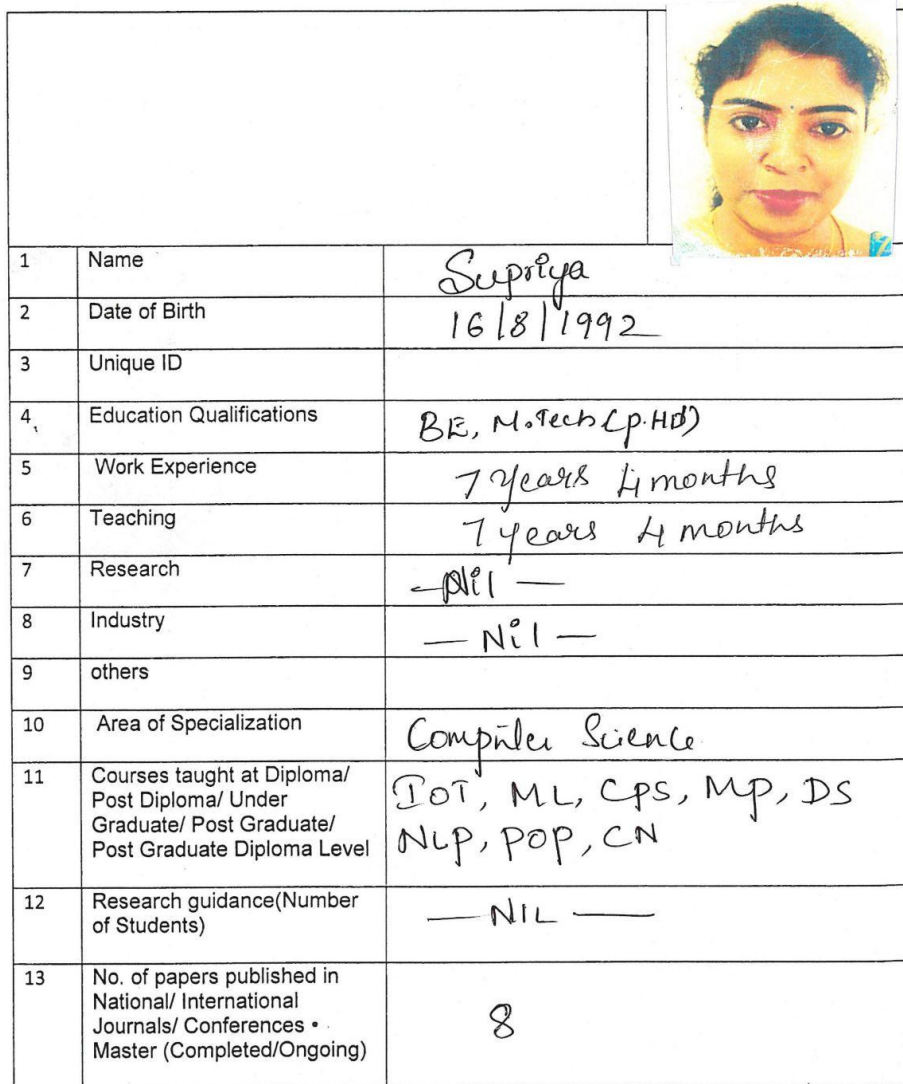 1 Name Supriya
2 Date of Birth 16/8/1992
3 Unique ID
4 Education Qualifications BE, M.Tech (P.HD)
5 Work Experience 7 years 4 months
6 Teaching 7 years 4 months
7 Research —Nil—
8 Industry —Nil—
9 others
10 Area of Specialization Computer Science
11 Courses taught at Diploma/ IOT, ML, CPS, MP, DS
Post Diploma/ Under NLP, POP, CN
Graduate/ Post Graduate/
Post Graduate Diploma Level
12 Research guidance(Number —NIL—
of Students)
13 No. of papers published in
National/ International
Journals/ Conferences • 8
Master (Completed/Ongoing)